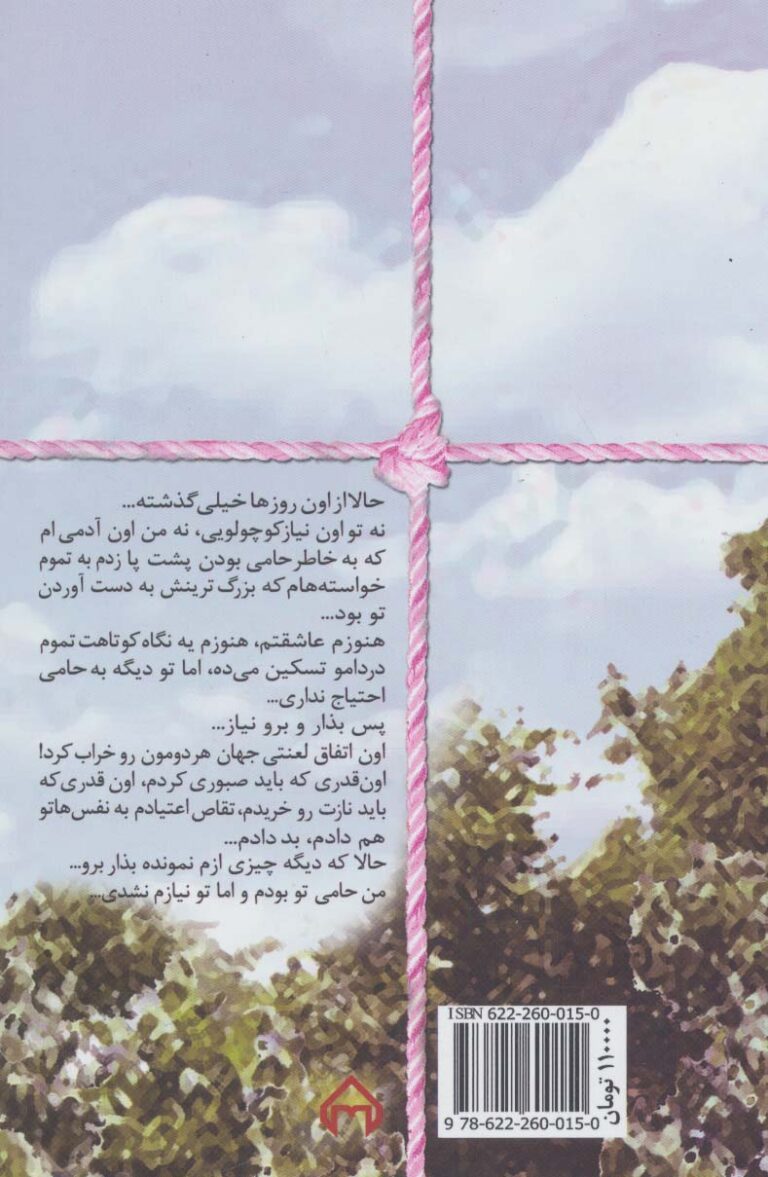 حالا از اون روزها خیلی گذشته...
نه تو اون نیاز کوچولویی، نه من اون آدمی ام
که به خاطر حامی بودن پشت پا زدم به تموم
خواسته‌هام که بزرگ ترینش به دست آوردن
تو بود...
هنوزم عاشقتم، هنوزم یه نگاه کوتاهت تموم
دردامو تسکین می‌ده، اما تو دیگه به حامی
احتیاج نداری...
پس بذار و برو نیاز...
اون اتفاق لعنتی جهان هر دومون رو خراب کرد!
اون‌قدری که باید صبوری کردم، اون قدری که
باید نازت رو خریدم، تقاص اعتیادم به نفس‌هاتو
هم دادم، بد دادم...
حالا که دیگه چیزی ازم نمونده بذار برو...
من حامی تو بودم و اما تو نیازم نشدی...
ISBN 622-260-015-0
9 78-622-260-015-0
۱۱۰۰۰۰ تومان